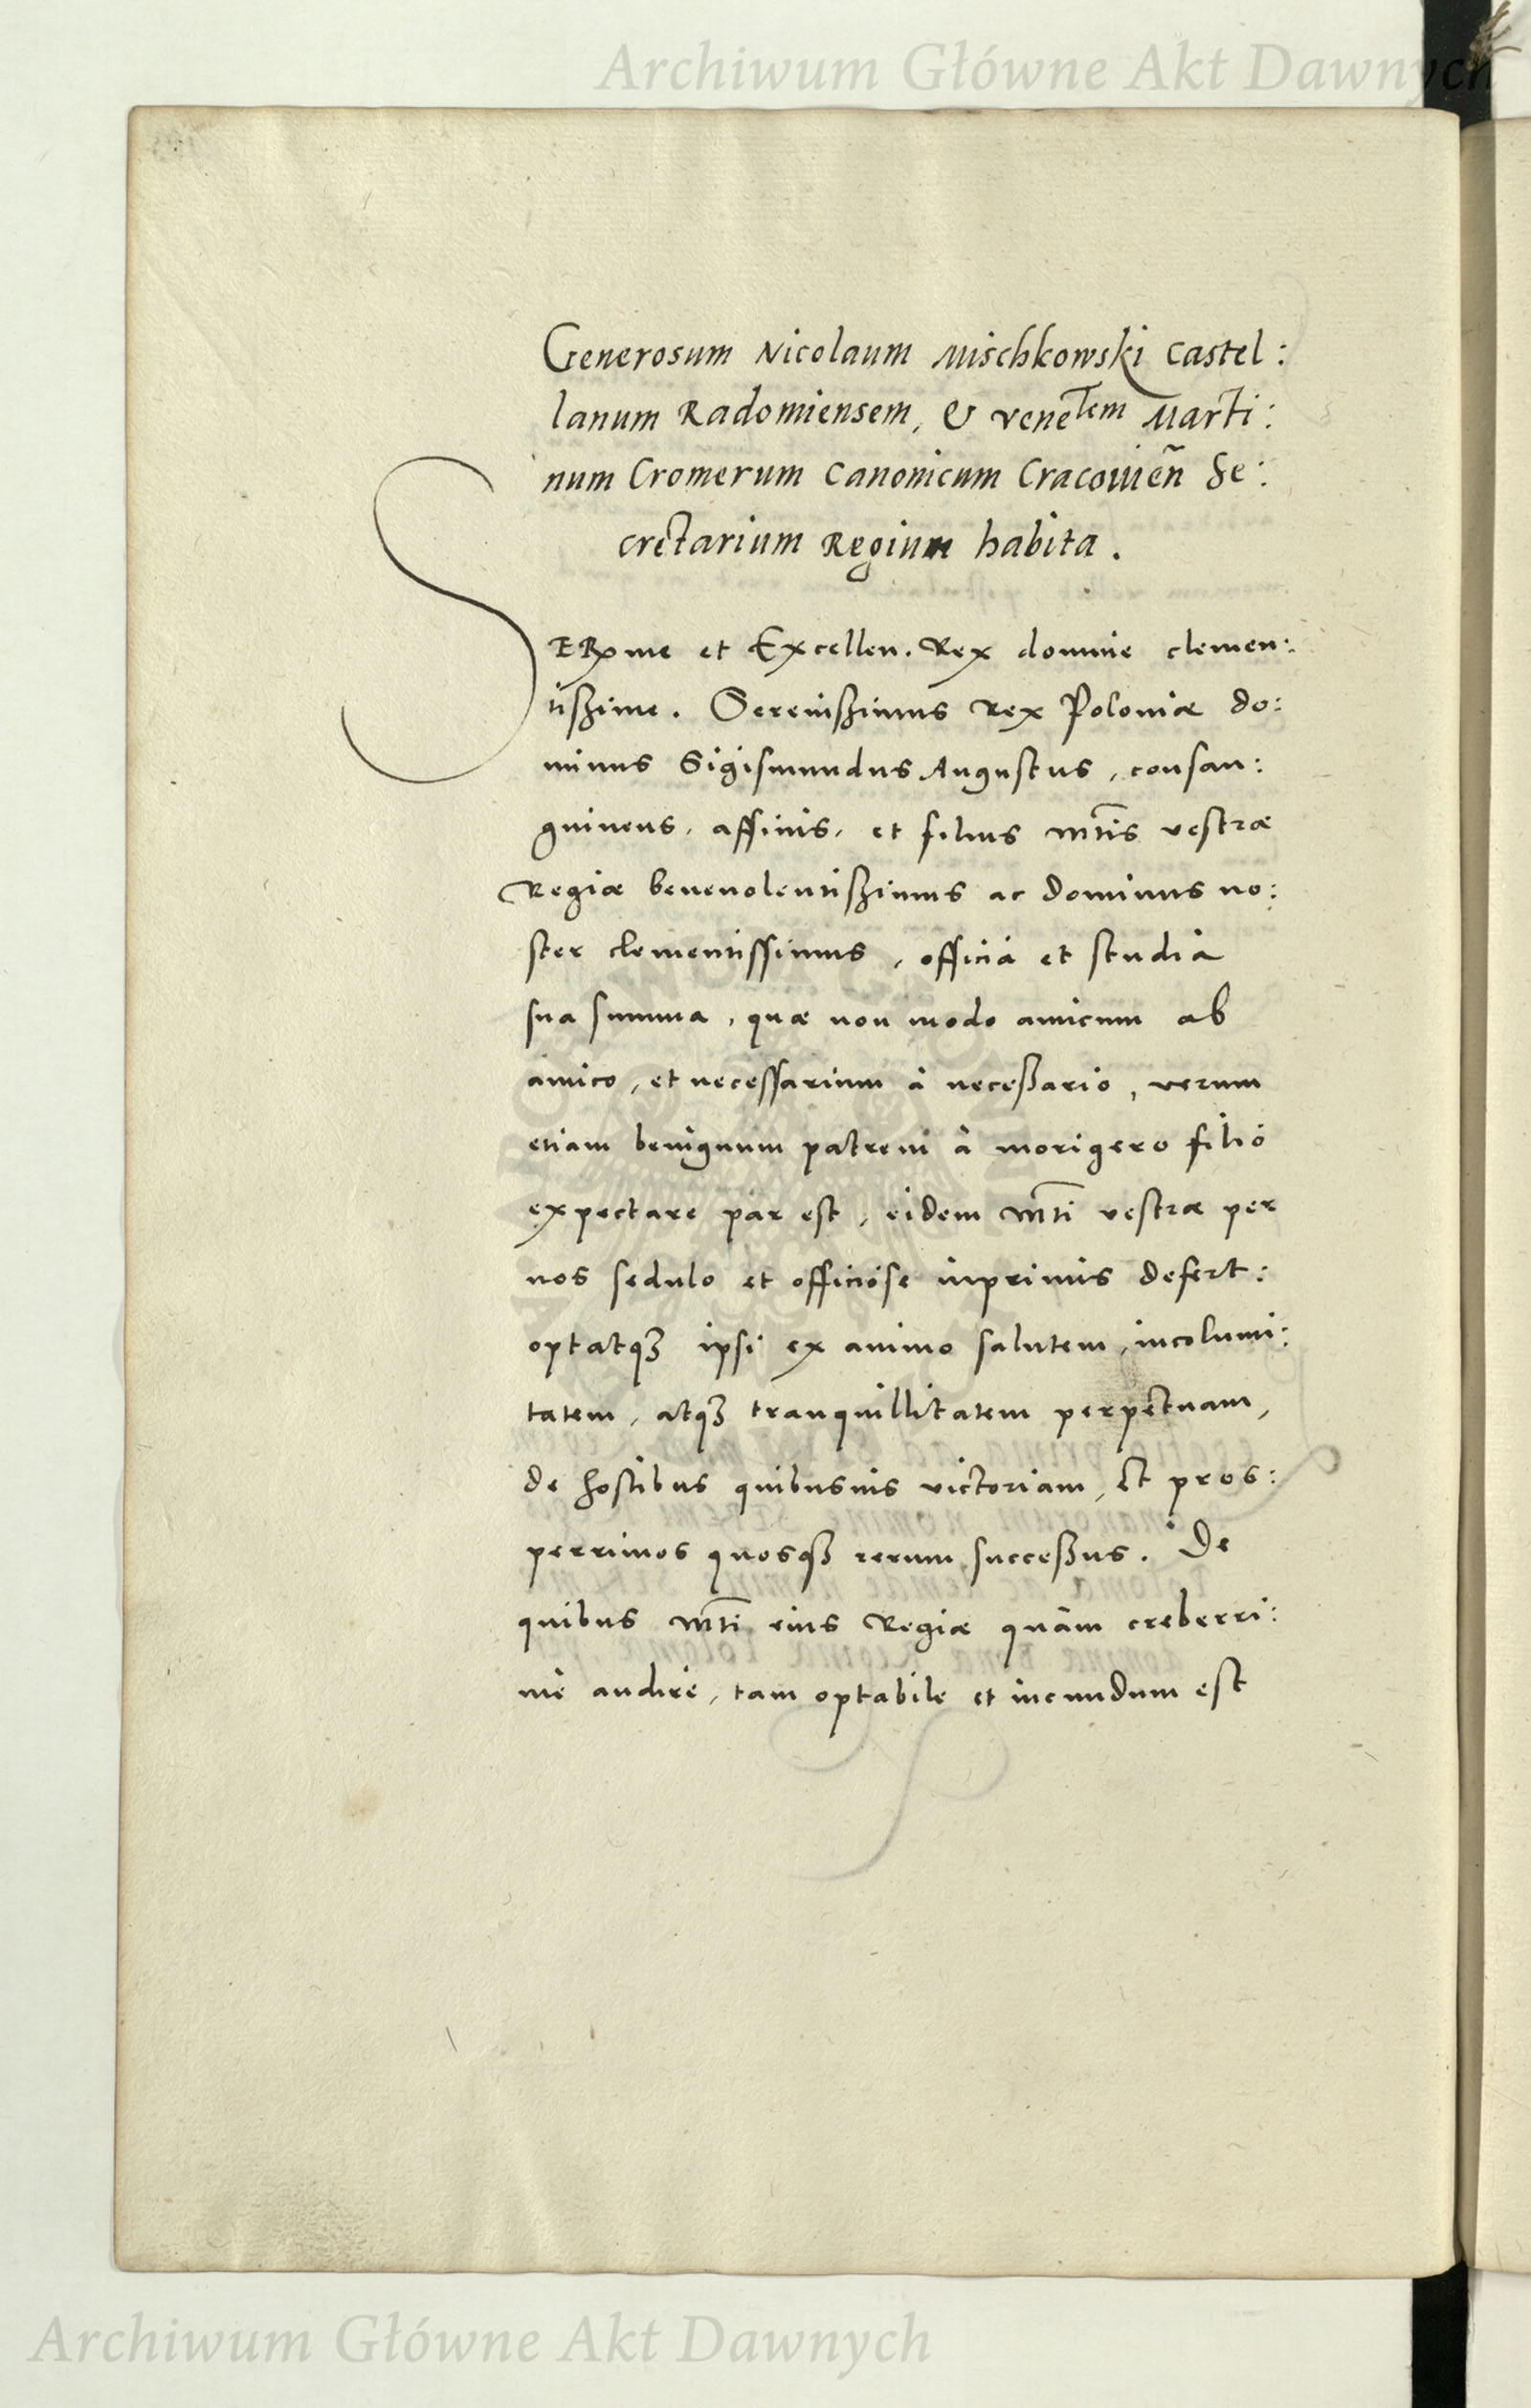 Archiwum Główne Akt Dawnych
Generosum Nicolaum Mischkowski Castel:
lanum Radomiensem, & venētem Marti:
num Cromerum Canonicum Cracouieñ Se:
cretarium Regium habita.
SERme et Excellen. Rex domine clemen:
tißime. Serenißimus Rex Poloniæ do:
minus Sigismundus Augustus, consan:
guineus, affinis, et filius Mtis vestræ
Regiæ beneuolentißimus ac dominus no:
ster clementissimus, officia et studia
sua summa, quæ non modo amicum ab
amico, et necessarium à neceßario, verum
etiam benignum patrem à morigero filio
expectare par est, eidem Mti vestræ per
nos sedulo et officiose inprimis defert:
optatqꝫ ipsi ex animo salutem, incolumi:
tatem, atqꝫ tranquillitatem perpetuam,
de hostibus quibusuis victoriam, et pros:
perrimos quosqꝫ rerum succeßus. De
quibus Mti eius Regiæ quàm creberri:
mè audire, tam optabile et iucundum est
Archiwum Główne Akt Dawnych